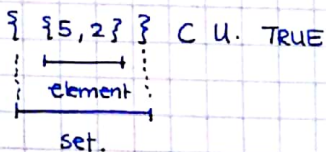 { {5,2} } C U. TRUE
element
set.